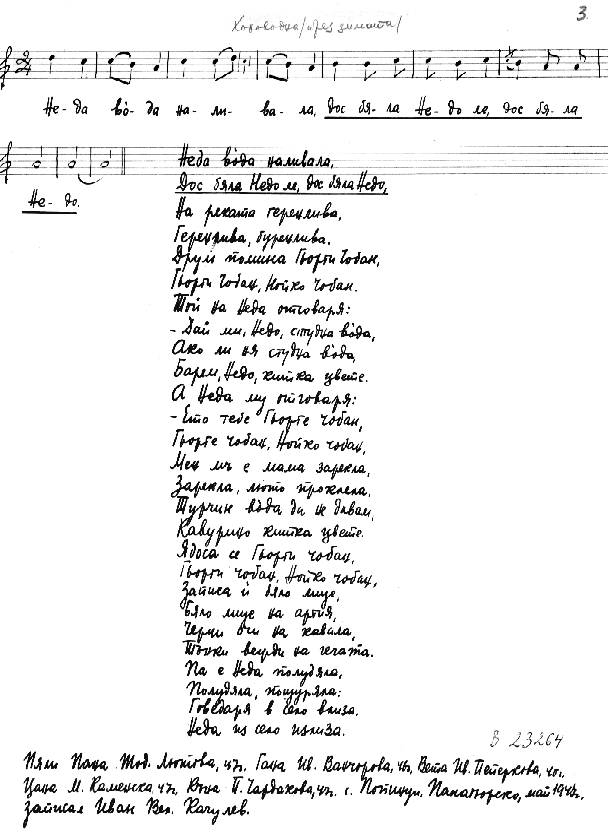 Хороводна /през зимата/
3.
Не-да во̀-да на-ли-ва-ла, дос бя-ла Не-до ле, дос бя-ла
Не-до.
Неда во̀да наливала,
Дос бяла Недо ле, дос бяла Недо,
На реката
Друм помина Гьорги Чобан,
Гьорги Чобан, Нойко Чобан.
Той на Неда отговаря:
- Дай ми, Недо, студна во̀да,
Ако ли ня студна во̀да,
Барем, Недо, китка цвете.
А Неда му отговаря:
- Ето тебе Гьорге Чобан,
Гьорге Чобан, Нойко Чобан,
Мен мъ е мама зарекла,
Зарекла, люто проклела.
Турчин во̀да да не давам,
Кавурино китка цвете.
Ядоса се Гьорги Чобан,
Гьорги Чобан, Нойко Чобан,
Записа ѝ бяло лице,
Бяло лице на артия,
Черни очи на кавала,
Тънки вежди на
Па е Неда полудяла,
Полудяла,
Говедаря в село влиза,
Неда из село излиза.
В 23264
Пяли Пана Тод. Лютова, 47г. Гана Ив. 46г. Вета Ив. Петеркова, 40г.
Цана М. Каменска 47г. П. Чардакова, 47г. с. Панагюрско, май 1948г.
Записал Иван Вел. Качулев.